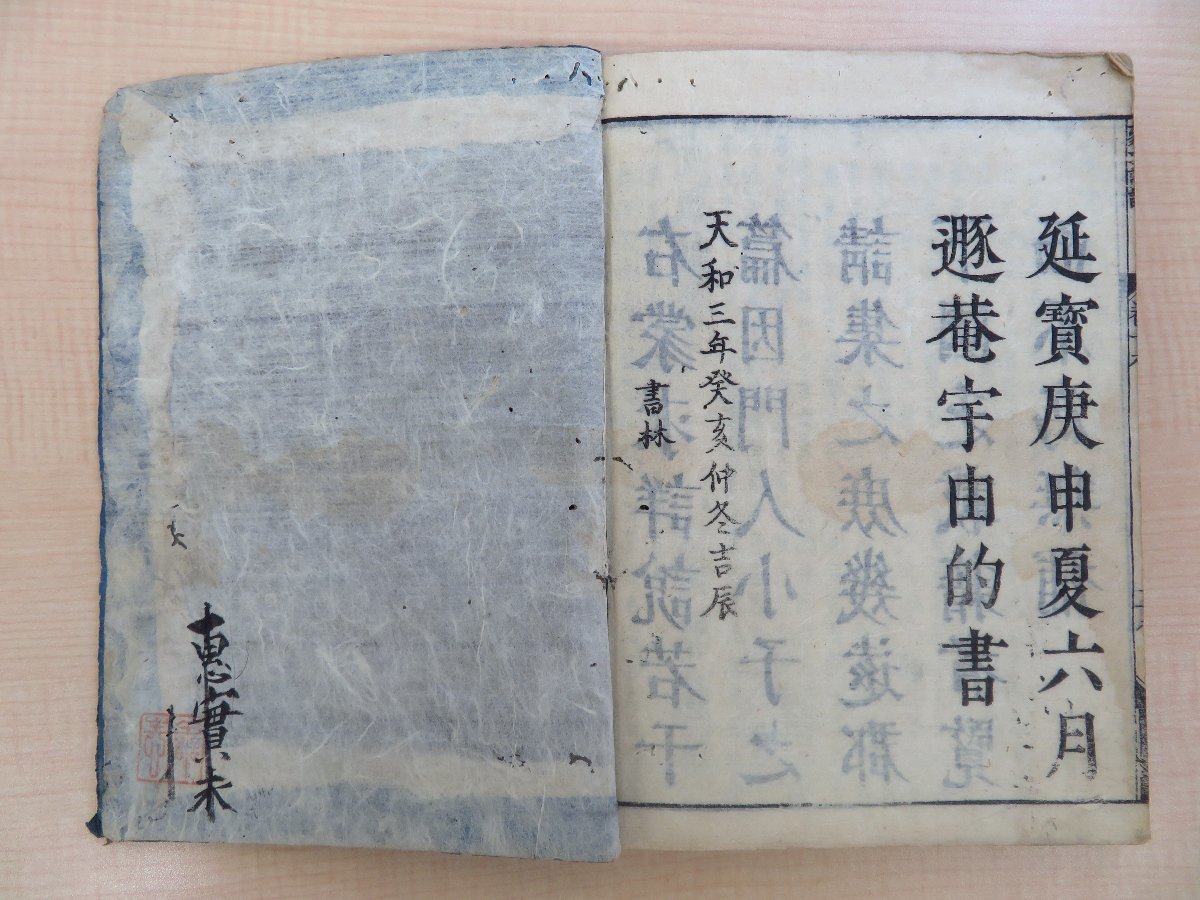 延寶庚申夏六月
遯菴宇由的書
天和三年癸亥仲冬吉辰
書林
惠實未